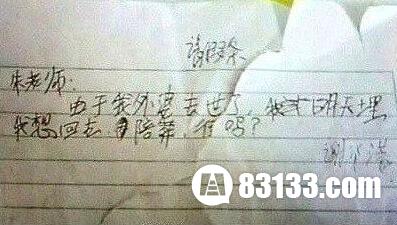 请假条
朱老师:
由于我外婆去世了,我 明天埋
我想回去 陪葬,行吗?
谢
83133.com